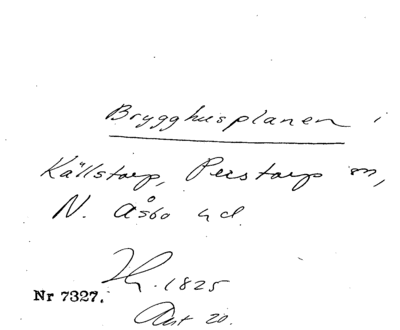 Brygghusplanen i
Källstorp, Perstorp sn,
N. Åsbo hd.
Nr 7327.
1825